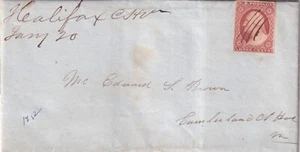 Halifax C H Va
Jany 20
Mr Edward S. Brown
Cumberland C. Hse
Va